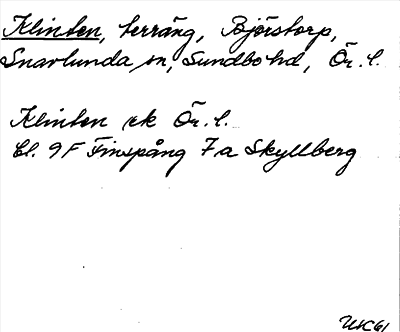 Klinten, terräng, Björstorp,
Snavlunda sn, Sundbo hd, Ör. l.
Klinten ek Ör. l.
Bl. 9 F Finspång 7 a Skyllberg